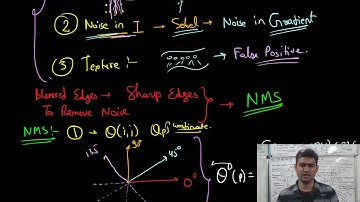 ② Noise in I → Sobel → Noise in Gradient
③ Texture :- → False Positive.
Blurred Edges → Sharp Edges
To Remove Noise → NMS
NMS :- ① → θ(i,j)
135 90 45° 0°
θ(p) =